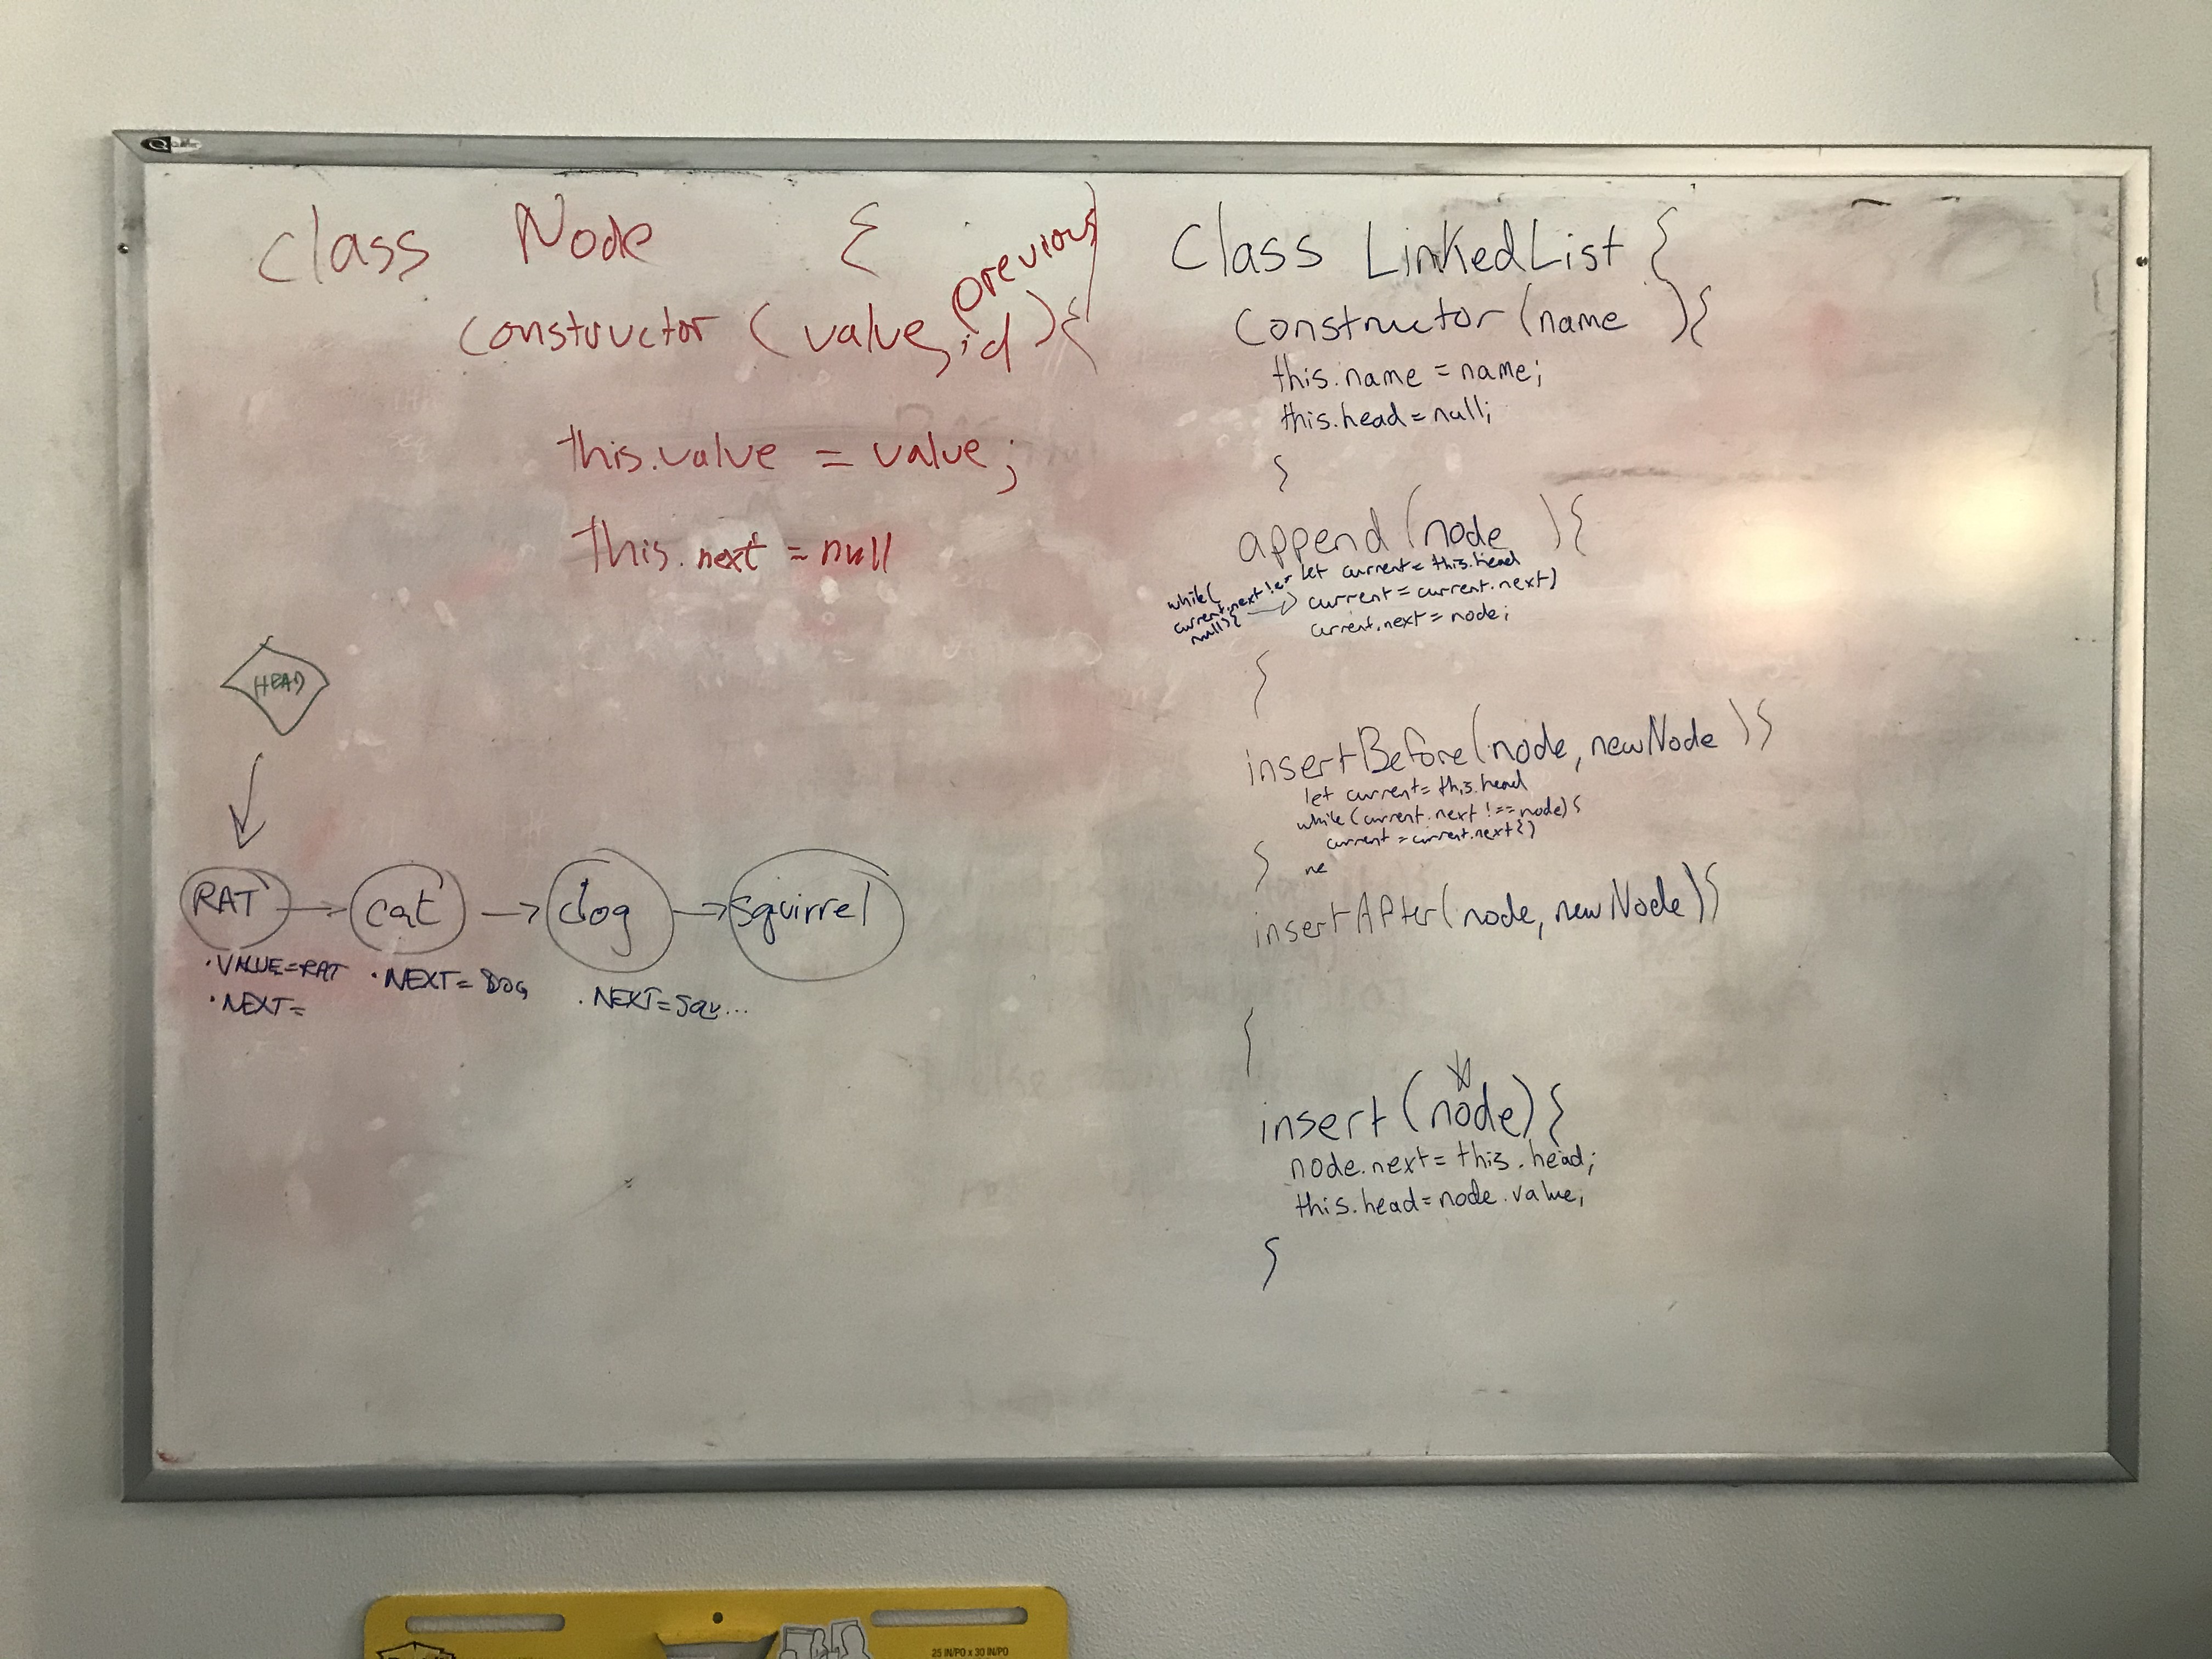 class Node {
constructor (value, id, previous) {
this.value = value;
this.next = null
HEAD
RAT → cat → dog → squirrel
• VALUE=RAT
• NEXT=
• NEXT= DOG
• NEXT=SQU...
Class LinkedList {
Constructor (name ){
this.name = name;
this.head = null;
}
append (node ){
let current = this.head
while( current.next != null) {
current = current.next}
current.next = node;
}
insertBefore(node, newNode ){
let current = this.head
while (current.next !== node) {
current = current.next {}
ne
}
insertAfter(node, newNode){
}
insert (node) {
node.next = this.head;
this.head = node.value;
}
25 IN/PO x 30 IN/PO